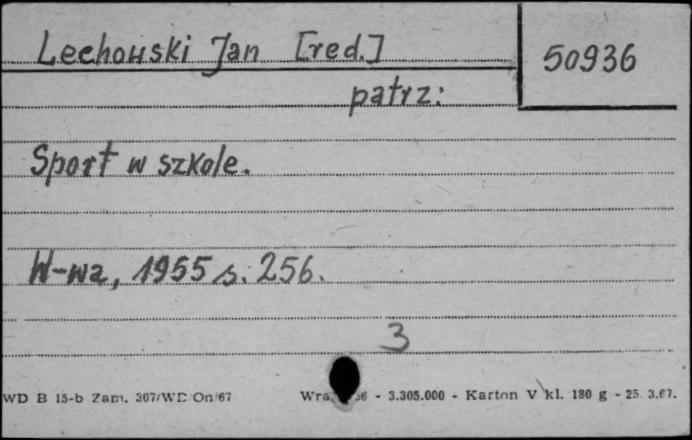 Lechowski Jan [red.]
50936
patrz:
Sport w szkole.
W-wa, 1955 s. 256.
3
WD B 15-b Zam. 307/WD/On/67 36 - 3.305.000 - Karton V kl. 180 g - 25. 3.67.